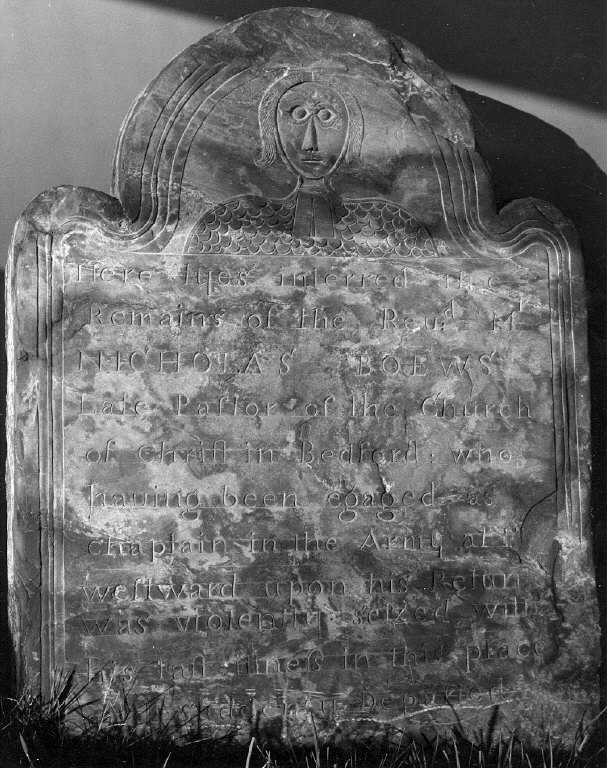 Here lyes interred the
Remains of the Reu.d Mr
NICHOLAS BOEWS
Late Paſtor of the Church
of Chriſt in Bedford who
hauing been egaged as
chaplain in the Army at
weſtward upon his Retun
was violently seized with
his laſt Illneſs in this place
Departed